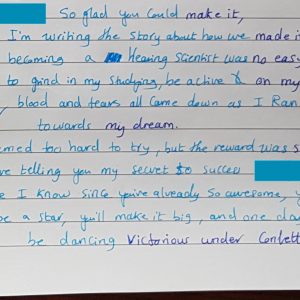 So glad you could make it,
I'm writing the story about how we made i
becoming a Hearing Scientist was no easy
to grind in my studying, be active & on my
, blood and tears all came down as I Ran
towards my dream.
emed too hard to try, but the reward was s
ve telling you my secret to success
e I know since you're already so awesome, y
be a star, you'll make it big, and one da
be dancing victorious under Confett